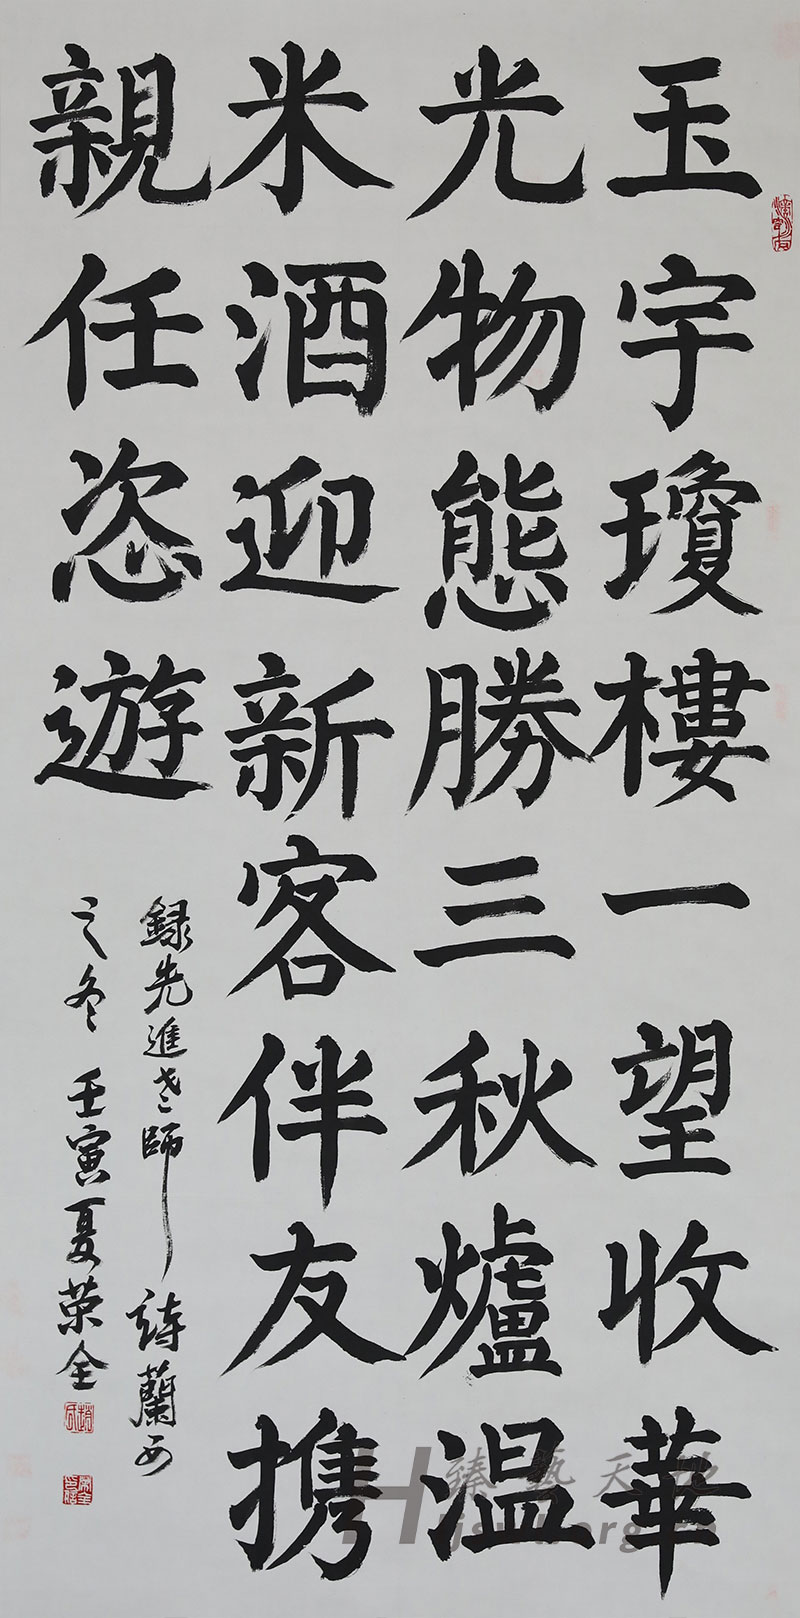 玉宇瓊樓一望收華
光物態勝三秋爐温
米酒迎新客伴友携
親任恣遊
録先進老師詩蘭西
之冬壬寅夏荣全
臻藝天地